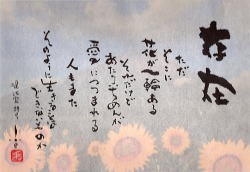 存在
ただ
そこに
花が一輪ある
それだけで
あたりぜんぶが
愛につつまれる
人もまた
そのように生きる事が
できるものか